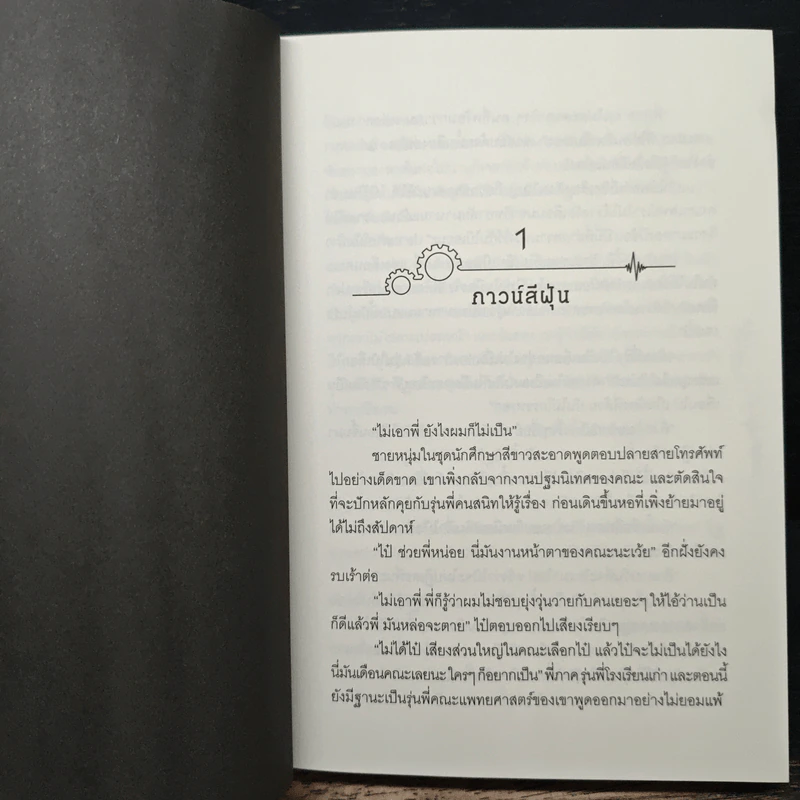 1
ภาวน์สีฝุ่น
“ไม่เอาพี่ ยังไงผมก็ไม่เป็น”
ชายหนุ่มในชุดนักศึกษาสีขาวสะอาดพูดตอบปลายสายโทรศัพท์
ไปอย่างเด็ดขาด เขาเพิ่งกลับจากงานปฐมนิเทศของคณะ และตัดสินใจ
ที่จะปักหลักคุยกับรุ่นพี่คนสนิทให้รู้เรื่อง ก่อนเดินขึ้นหอที่เพิ่งย้ายมาอยู่
ได้ไม่ถึงสัปดาห์
“ไป๋ ช่วยพี่หน่อย นี่มันงานหน้าตาของคณะนะเว้ย” อีกฝั่งยังคง
รบเร้าต่อ
“ไม่เอาพี่ พี่ก็รู้ว่าผมไม่ชอบยุ่งวุ่นวายกับคนเยอะๆ ให้ไอ้ว่านเป็น
ก็ดีแล้วพี่ มันหล่อจะตาย” ไป๋ตอบออกไปเสียงเรียบๆ
“ไม่ได้ไป๋ เสียงส่วนใหญ่ในคณะเลือกไป๋ แล้วไป๋จะไม่เป็นได้ยังไง
นี่มันเดือนคณะเลยนะ ใครๆ ก็อยากเป็น” พี่ภาค รุ่นพี่โรงเรียนเก่า และตอนนี้
ยังมีฐานะเป็นรุ่นพี่คณะแพทยศาสตร์ของเขาพูดออกมาอย่างไม่ยอมแพ้